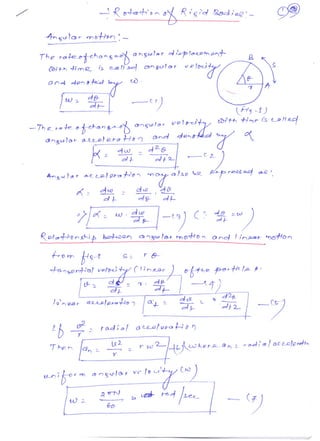 :- Rotation of Rigid Bodies:-
Angular motion:-
The rate of change of angular displacement
with time is called angular velocity
and denoted by ω
ω = dθ/dt —(1)
B
S
θ
r
A
(Fig-1)
- The rate of change of angular velocity with time is called
angular acceleration and denoted by α
α = dω/dt = d²θ/dt² —(2)
Angular acceleration may also be expressed as:
α = dω/dt = dω/dθ · dθ/dt
=> α = ω · dω/dθ —(3) (∵ dθ/dt = ω)
Relationship between angular motion and linear motion
from fig-1 S = rθ
tangential velocity (linear) of the particle
v = ds/dt = r · dθ/dt —(4)
linear acceleration a_t = dv/dt = r d²θ/dt² —(5)
If v²/r = radial acceleration
Then a_n = v²/r = rω² —(6) where a_n = radial acceleration
uniform angular velocity (ω)
ω = 2πN/60 rad/sec —(7)